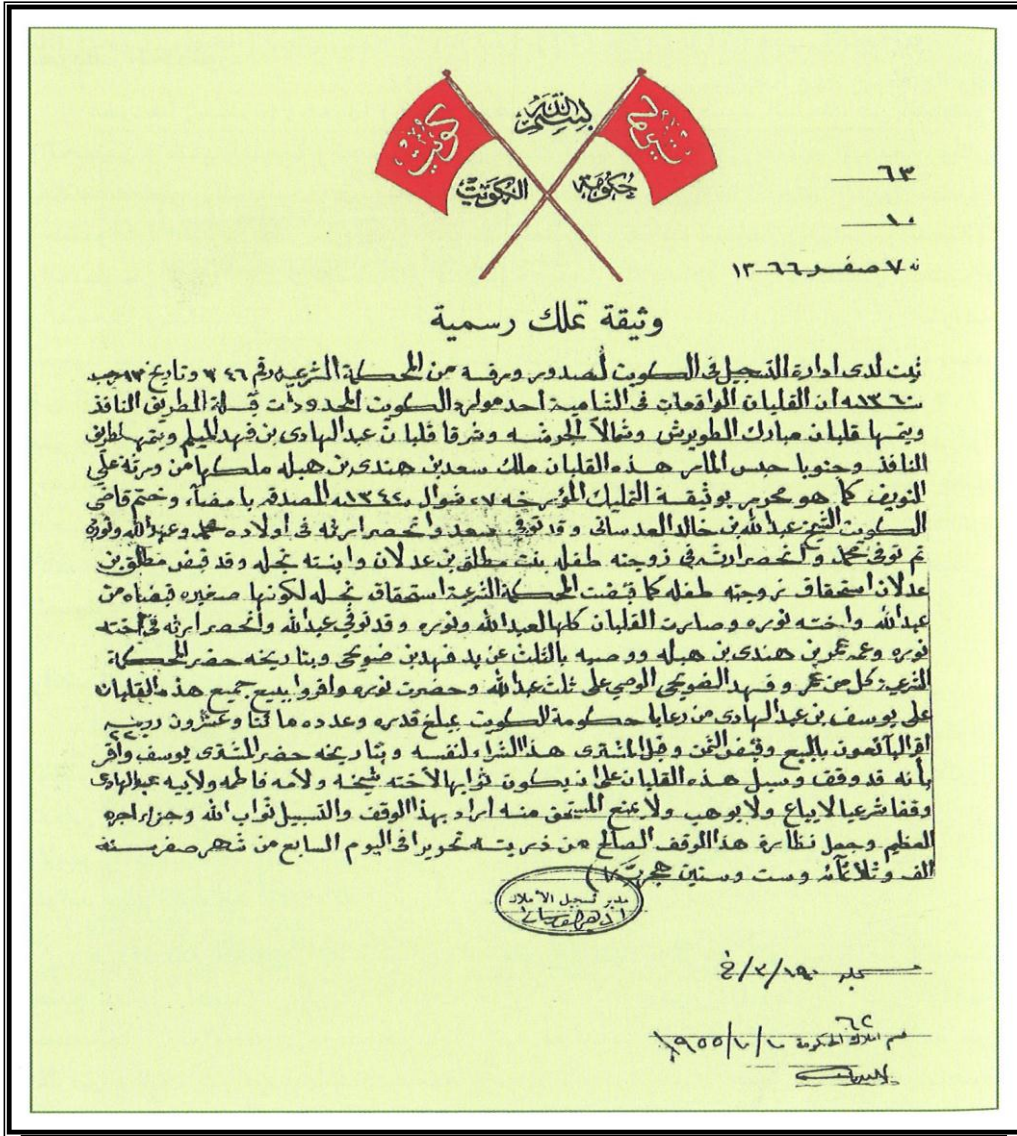 بسم الله
كويت
كويت
حكومة الكويت
٦٣
١٠
٧ صفر ١٣٦٦
وثيقة تملك رسمية
ثبت لدى ادارة التسجيل في الكويت لصدور ورقة من المحكمة الشرعيه رقم ٣٤٦ وتاريخ ١٣ رجب
١٣٦٠ ه أن القلبان الواقعات في الشامية احد موارد الكويت المحدودات قبلة الطريق النافذ
ويتمها قلبان مبارك الطويرش وشمالاً الجرشه وشرقا قلبان عبد الهادى بن فهد الميلم ويتمها طريق
النافذ وجنوبا حبس الماء هذه القلبان ملك سعد بن هندى بن هبله ملكها من ورثة علي
النويف كما هو محرر بوثيقة التمليك المؤرخه ٢٧ شوال ١٣٤٤ه المصدقه بامضاء وختم قاضى
الكويت الشيخ عبد الله بن خالد العدسانى وقد توفي سعد وانحصر ارثه في اولاده محمد وعبد الله ونوره
ثم توفي محمد وانحصر ارثه في زوجته طفله بنت مطلق بن عدلان وابنته نجله وقد قبض مطلق بن
عدلان استحقاق زوجته طفله كما قبضت المحكمة الشرعية استحقاق نجله لكونها صغيره قبضاه من
عبد الله واخته نوره وصارت القلبان كلها لعبد الله ونوره وقد توفي عبد الله وانحصر ارثه في اخته
نوره وعمه عمر بن هندى بن هبله ووصيه بالثلث عن يد فهد بن ضويحى وبتاريخه حضر للمحكمة
الشرعية كل من عمر وفهد الضويحى الوصي على ثلث عبد الله وحضرت نوره واقروا ببيع جميع هذه القلبان
على يوسف بن عبد الهادى من رعايا حكومة الكويت بمبلغ قدره وعدده مائتا وعشرون روبيه
اقر البائعون بالبيع وقبض الثمن وقبل المشترى هذا الشراء لنفسه وبتاريخه حضر المشترى يوسف وأقر
بأنه قد وقف وسبل هذه القلبان على ان يكون ثوابها لأخته شيخه ولأمه فاطمه ولأبيه عبد الهادى
وقفا شرعيا لا يباع ولا يوهب ولا يمنع المستحق منه أراد بهذا الوقف والتسبيل ثواب الله وجزاء اجره
العظيم وجعل نظارة هذا الوقف الصالح من ذريته تحريرا في اليوم السابع من شهر صفر سنة
الف وثلاثمائه وست وستين هجرية
مدير تسجيل الأملاك
سجل ١٩٠/٢/خ
٦٢
قسم املاك الحكومة ١٩٥٥